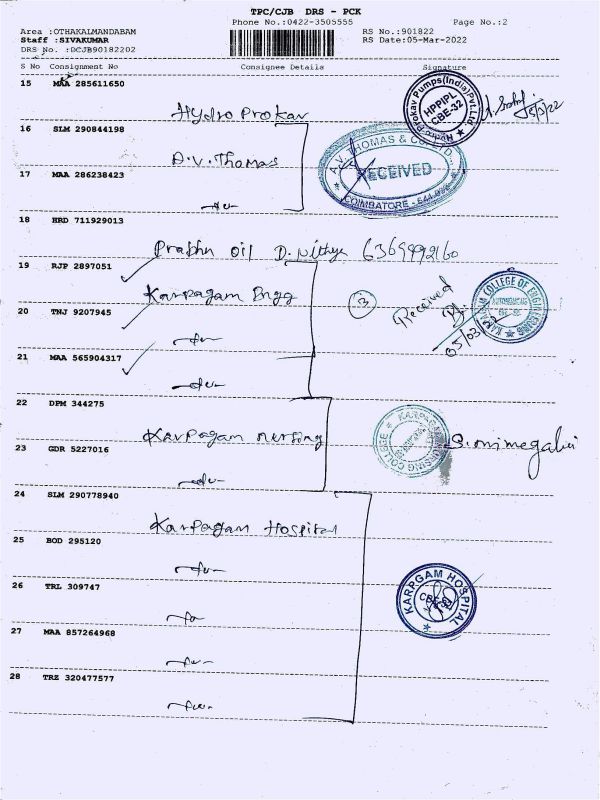 TPC/CJB DRS - PCK
Phone No.:0422-3505555 Page No.:2
Area :OTHAKALMANDABAM RS No.:901822
Staff :SIVAKUMAR RS Date:05-Mar-2022
DRS No. :DCJB90182202
S No Consignment No Consignee Details Signature
15 MAA 285611650
Hydro Prokav
Hydro Prokav Pumps(India)Pvt.Ltd
HPPIPL
CBE-32
16 SLM 290844198
A.V. Thomas
A.V. THOMAS & CO
RECEIVED
COIMBATORE
17 MAA 286238423
-do-
18 HRD 711929013
Prabhu oil D. Nithya 6369992160
19 RJP 2897051
Karpagam Engg
3
Received
05/03/22
KARPAGAM COLLEGE OF ENGINEERING
AUTONOMOUS
20 TNJ 9207945
-do-
21 MAA 565904317
-do-
22 DPM 344275
Karpagam nursing
KARPAGAM NURSING COLLEGE
S. Manimegalai
23 GDR 5227016
-do-
24 SLM 290778940
Karpagam Hospital
25 BOD 295120
-do-
26 TRL 309747
-do-
KARPGAM HOSPITAL
27 MAA 857264968
-do-
28 TRZ 320477577
-do-